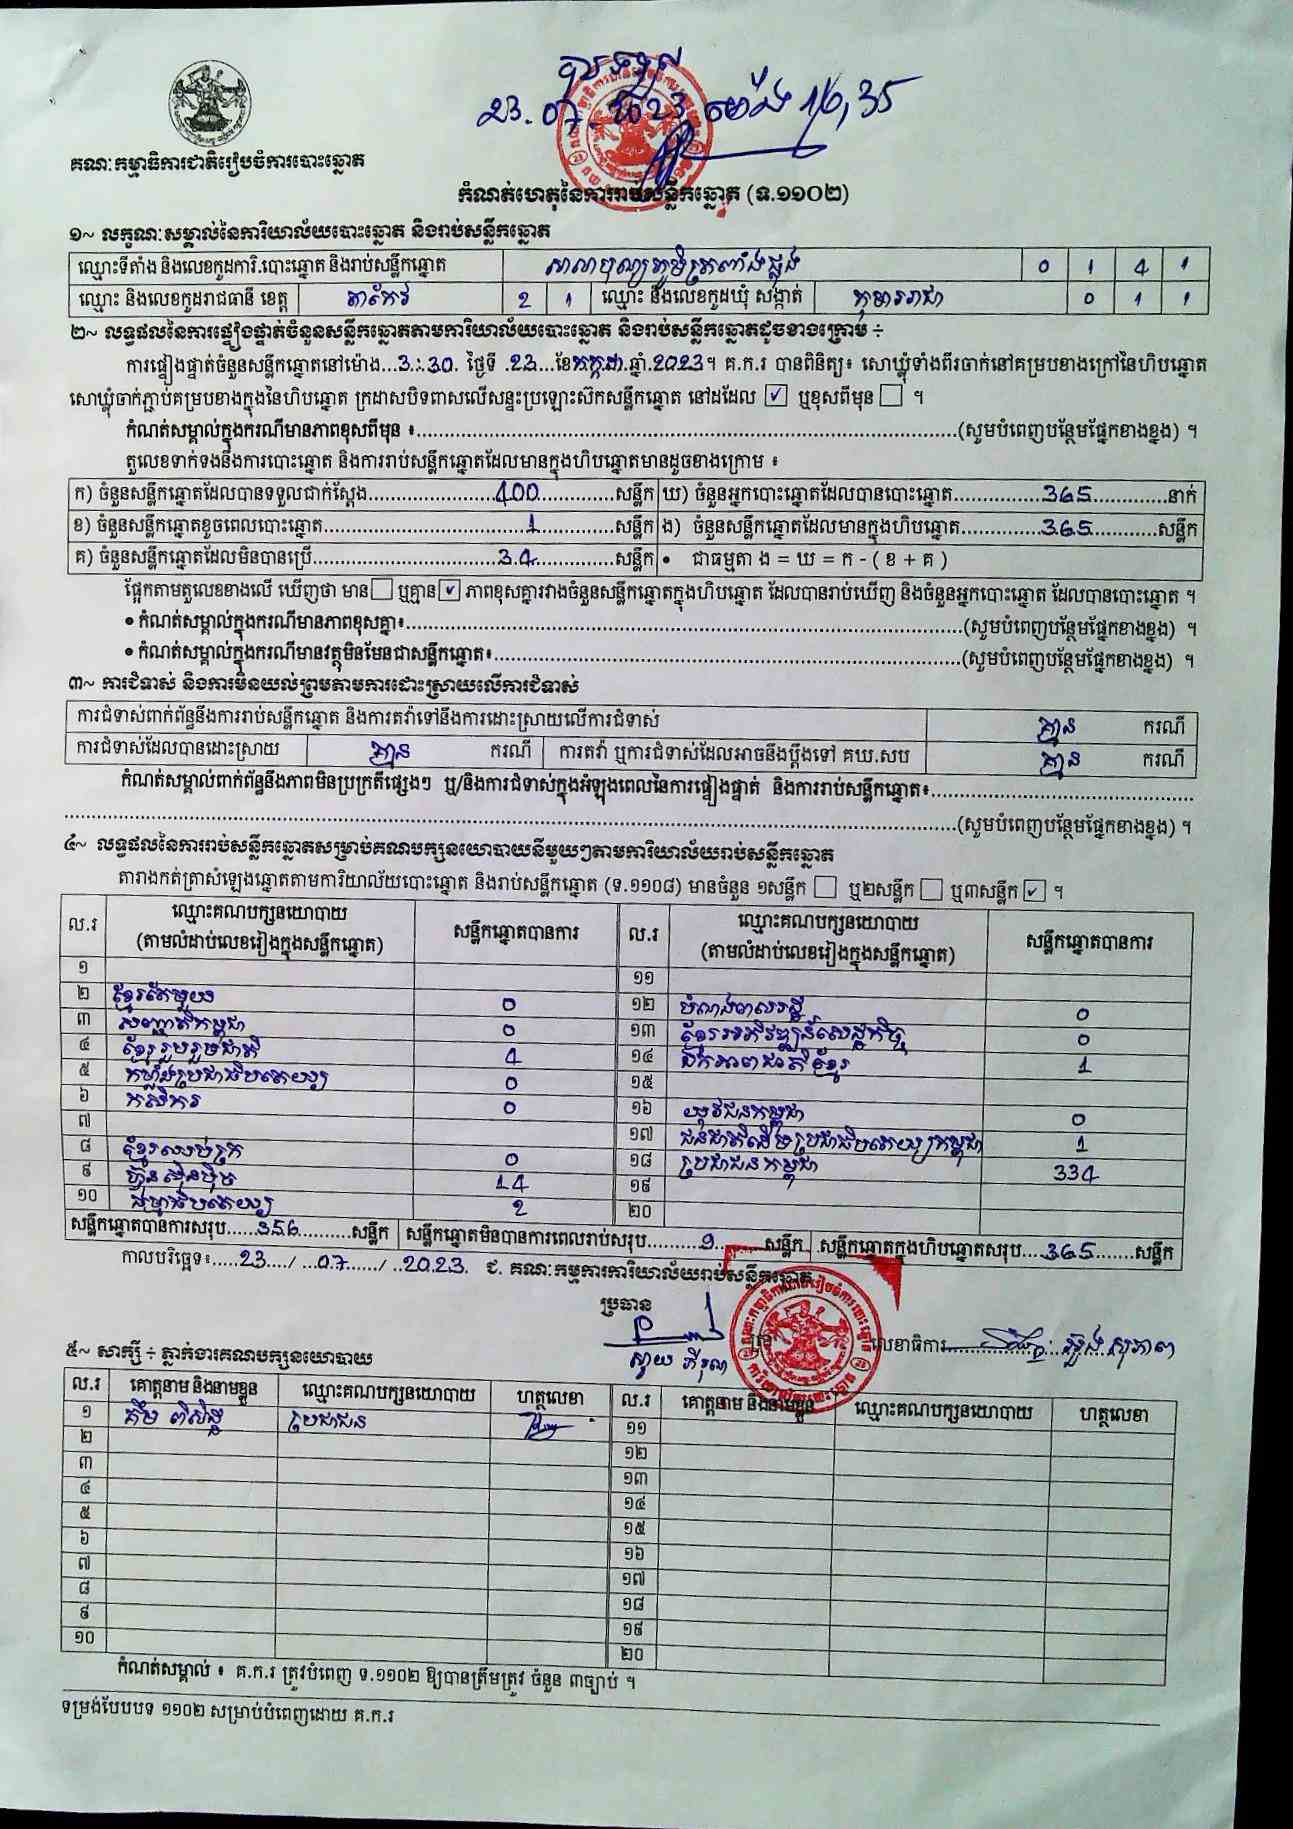 23.07.2023 ម៉ោង 16,35
គណៈកម្មាធិការជាតិរៀបចំការបោះឆ្នោត
កំណត់ហេតុនៃការរាប់សន្លឹកឆ្នោត (ទ.១១០២)
១~ លក្ខណៈសម្គាល់នៃការិយាល័យបោះឆ្នោត និងរាប់សន្លឹកឆ្នោត
ឈ្មោះទីតាំង និងលេខកូដការិ.បោះឆ្នោត និងរាប់សន្លឹកឆ្នោត សាលាបុណ្យភូមិត្រពាំងផ្លុង 0 1 4 1
ឈ្មោះ និងលេខកូដរាជធានី ខេត្ត តាកែវ 2 1 ឈ្មោះ និងលេខកូដឃុំ សង្កាត់ កុមាររាជា 0 1 1
២~ លទ្ធផលនៃការផ្ទៀងផ្ទាត់ចំនួនសន្លឹកឆ្នោតតាមការិយាល័យបោះឆ្នោត និងរាប់សន្លឹកឆ្នោតដូចខាងក្រោម ÷
ការផ្ទៀងផ្ទាត់ចំនួនសន្លឹកឆ្នោតនៅម៉ោង...3:30. ថ្ងៃទី .23...ខែកក្កដា.ឆ្នាំ.2023។ គ.ក.រ បានពិនិត្យ៖ សោឃ្លុំទាំងពីរចាក់នៅគម្របខាងក្រៅនៃហិបឆ្នោត
សោឃ្លុំចាក់ភ្ជាប់គម្របខាងក្នុងនៃហិបឆ្នោត ក្រដាសបិទពាសលើសន្ទះប្រឡោះស៊កសន្លឹកឆ្នោត នៅដដែល ☑ ឬខុសពីមុន ☐ ។
កំណត់សម្គាល់ក្នុងករណីមានភាពខុសពីមុន ៖...(សូមបំពេញបន្ថែមផ្នែកខាងខ្នង) ។
តួលេខទាក់ទងនឹងការបោះឆ្នោត និងការរាប់សន្លឹកឆ្នោតដែលមានក្នុងហិបឆ្នោតមានដូចខាងក្រោម ៖
ក) ចំនួនសន្លឹកឆ្នោតដែលបានទទួលជាក់ស្ដែង...400...សន្លឹក ឃ) ចំនួនអ្នកបោះឆ្នោតដែលបានបោះឆ្នោត...365...នាក់
ខ) ចំនួនសន្លឹកឆ្នោតខូចពេលបោះឆ្នោត...1...សន្លឹក ង) ចំនួនសន្លឹកឆ្នោតដែលមានក្នុងហិបឆ្នោត...365...សន្លឹក
គ) ចំនួនសន្លឹកឆ្នោតដែលមិនបានប្រើ...34...សន្លឹក • ជាធម្មតា ង = ឃ = ក - ( ខ + គ )
ផ្អែកតាមតួលេខខាងលើ ឃើញថា មាន ☐ ឬគ្មាន ☑ ភាពខុសគ្នារវាងចំនួនសន្លឹកឆ្នោតក្នុងហិបឆ្នោត ដែលបានរាប់ឃើញ និងចំនួនអ្នកបោះឆ្នោត ដែលបានបោះឆ្នោត ។
• កំណត់សម្គាល់ក្នុងករណីមានភាពខុសគ្នា៖...(សូមបំពេញបន្ថែមផ្នែកខាងខ្នង) ។
• កំណត់សម្គាល់ក្នុងករណីមានវត្ថុមិនមែនជាសន្លឹកឆ្នោត៖...(សូមបំពេញបន្ថែមផ្នែកខាងខ្នង) ។
៣~ ការជំទាស់ និងការមិនយល់ព្រមតាមការដោះស្រាយលើការជំទាស់
ការជំទាស់ពាក់ព័ន្ធនឹងការរាប់សន្លឹកឆ្នោត និងការតវ៉ាទៅនឹងការដោះស្រាយលើការជំទាស់ គ្មាន ករណី
ការជំទាស់ដែលបានដោះស្រាយ គ្មាន ករណី ការតវ៉ា ឬការជំទាស់ដែលអាចនឹងប្ដឹងទៅ គឃ.សប គ្មាន ករណី
កំណត់សម្គាល់ពាក់ព័ន្ធនឹងភាពមិនប្រក្រតីផ្សេងៗ ឬ/និងការជំទាស់ក្នុងអំឡុងពេលនៃការផ្ទៀងផ្ទាត់ និងការរាប់សន្លឹកឆ្នោត៖...
...(សូមបំពេញបន្ថែមផ្នែកខាងខ្នង) ។
៤~ លទ្ធផលនៃការរាប់សន្លឹកឆ្នោតសម្រាប់គណបក្សនយោបាយនីមួយៗតាមការិយាល័យរាប់សន្លឹកឆ្នោត
តារាងកត់ត្រាសំឡេងឆ្នោតតាមការិយាល័យបោះឆ្នោត និងរាប់សន្លឹកឆ្នោត (ទ.១១០៨) មានចំនួន ១សន្លឹក ☐ ឬ២សន្លឹក ☐ ឬ៣សន្លឹក ☑ ។
ល.រ ឈ្មោះគណបក្សនយោបាយ (តាមលំដាប់លេខរៀងក្នុងសន្លឹកឆ្នោត) សន្លឹកឆ្នោតបានការ ល.រ ឈ្មោះគណបក្សនយោបាយ (តាមលំដាប់លេខរៀងក្នុងសន្លឹកឆ្នោត) សន្លឹកឆ្នោតបានការ
១ ១១
២ ខ្មែរតែមួយ 0 ១២ សំណង់ 0
៣ សញ្ជាតិកម្ពុជា 0 ១៣ ខ្មែរអភិវឌ្ឍន៍សេដ្ឋកិច្ច 0
៤ ខ្មែររួបរួមជាតិ 4 ១៤ ឯកភាពជាតិខ្មែរ 1
៥ កម្លាំងប្រជាធិបតេយ្យ 0 ១៥
៦ កសិករ 0 ១៦ យុវជនកម្ពុជា 0
៧ ១៧ ជនជាតិដើមប្រជាធិបតេយ្យកម្ពុជា 1
៨ ខ្មែរឈប់ក្រ 0 ១៨ ប្រជាជនកម្ពុជា 334
៩ ហ៊្វុនស៊ិនប៉ិច 14 ១៩
១០ ធម្មាធិបតេយ្យ 2 ២០
សន្លឹកឆ្នោតបានការសរុប...356...សន្លឹក សន្លឹកឆ្នោតមិនបានការពេលរាប់សរុប...9...សន្លឹក សន្លឹកឆ្នោតក្នុងហិបឆ្នោតសរុប...365...សន្លឹក
កាលបរិច្ឆេទ៖...23.../...07.../...2023. ជ. គណៈកម្មការការិយាល័យរាប់សន្លឹកឆ្នោត
ប្រធាន
លេខាធិការ... អ៊ួង សុភាព
ស្វាយ ភីរុណ
៥~ សាក្សី ÷ ភ្នាក់ងារគណបក្សនយោបាយ
ល.រ គោត្តនាម និងនាមខ្លួន ឈ្មោះគណបក្សនយោបាយ ហត្ថលេខា ល.រ គោត្តនាម និងនាមខ្លួន ឈ្មោះគណបក្សនយោបាយ ហត្ថលេខា
១ គឹម ពិសិដ្ឋ ប្រជាជន ១១
២ ១២
៣ ១៣
៤ ១៤
៥ ១៥
៦ ១៦
៧ ១៧
៨ ១៨
៩ ១៩
១០ ២០
កំណត់សម្គាល់ ៖ គ.ក.រ ត្រូវបំពេញ ទ.១១០២ ឱ្យបានត្រឹមត្រូវ ចំនួន ៣ច្បាប់ ។
ទម្រង់បែបបទ ១១០២ សម្រាប់បំពេញដោយ គ.ក.រ